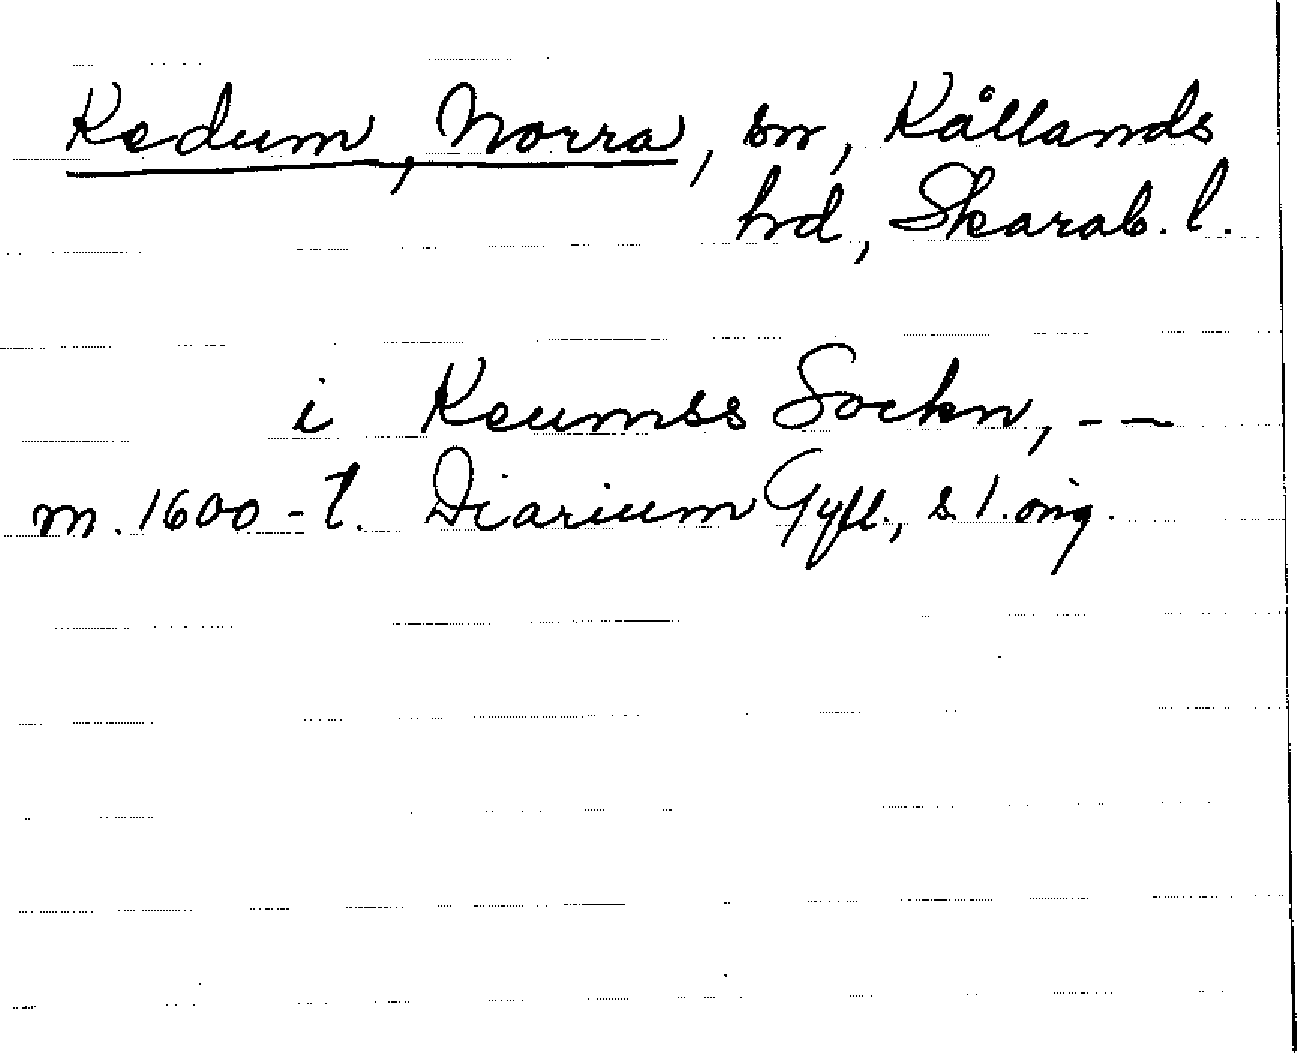 Kedum, Norra, sn, Kållands
hd, Skarab. l.
i Keumss Sockn, --
m. 1600-t. Diarium Gyll., s. 1. orig.